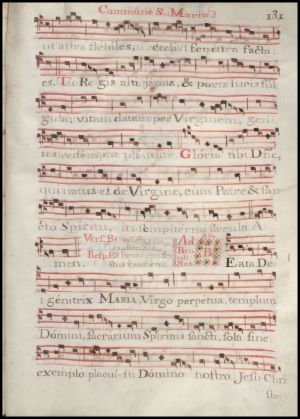 Commune S. Mariæ 131
ut astra flebiles, cœli fenestra facta
es. Tu Regis alti janua, & porta lucis ful
gida; vitam datam per Virginem, gen
tes redemptæ plaudite. Gloria tibi Dñe,
qui natus es de Virgine, cum Patre & san
cto Spiritu, in sempiterna sæcula A
men. Vers. Benedicta tu Ad Bene dictus Beata De
i genitrix MARIA Virgo perpetua, templum
Domini, sacrarium Spiritus sancti, sola sine
exemplo placuisti Domino nostro Jesu Chri
sto: